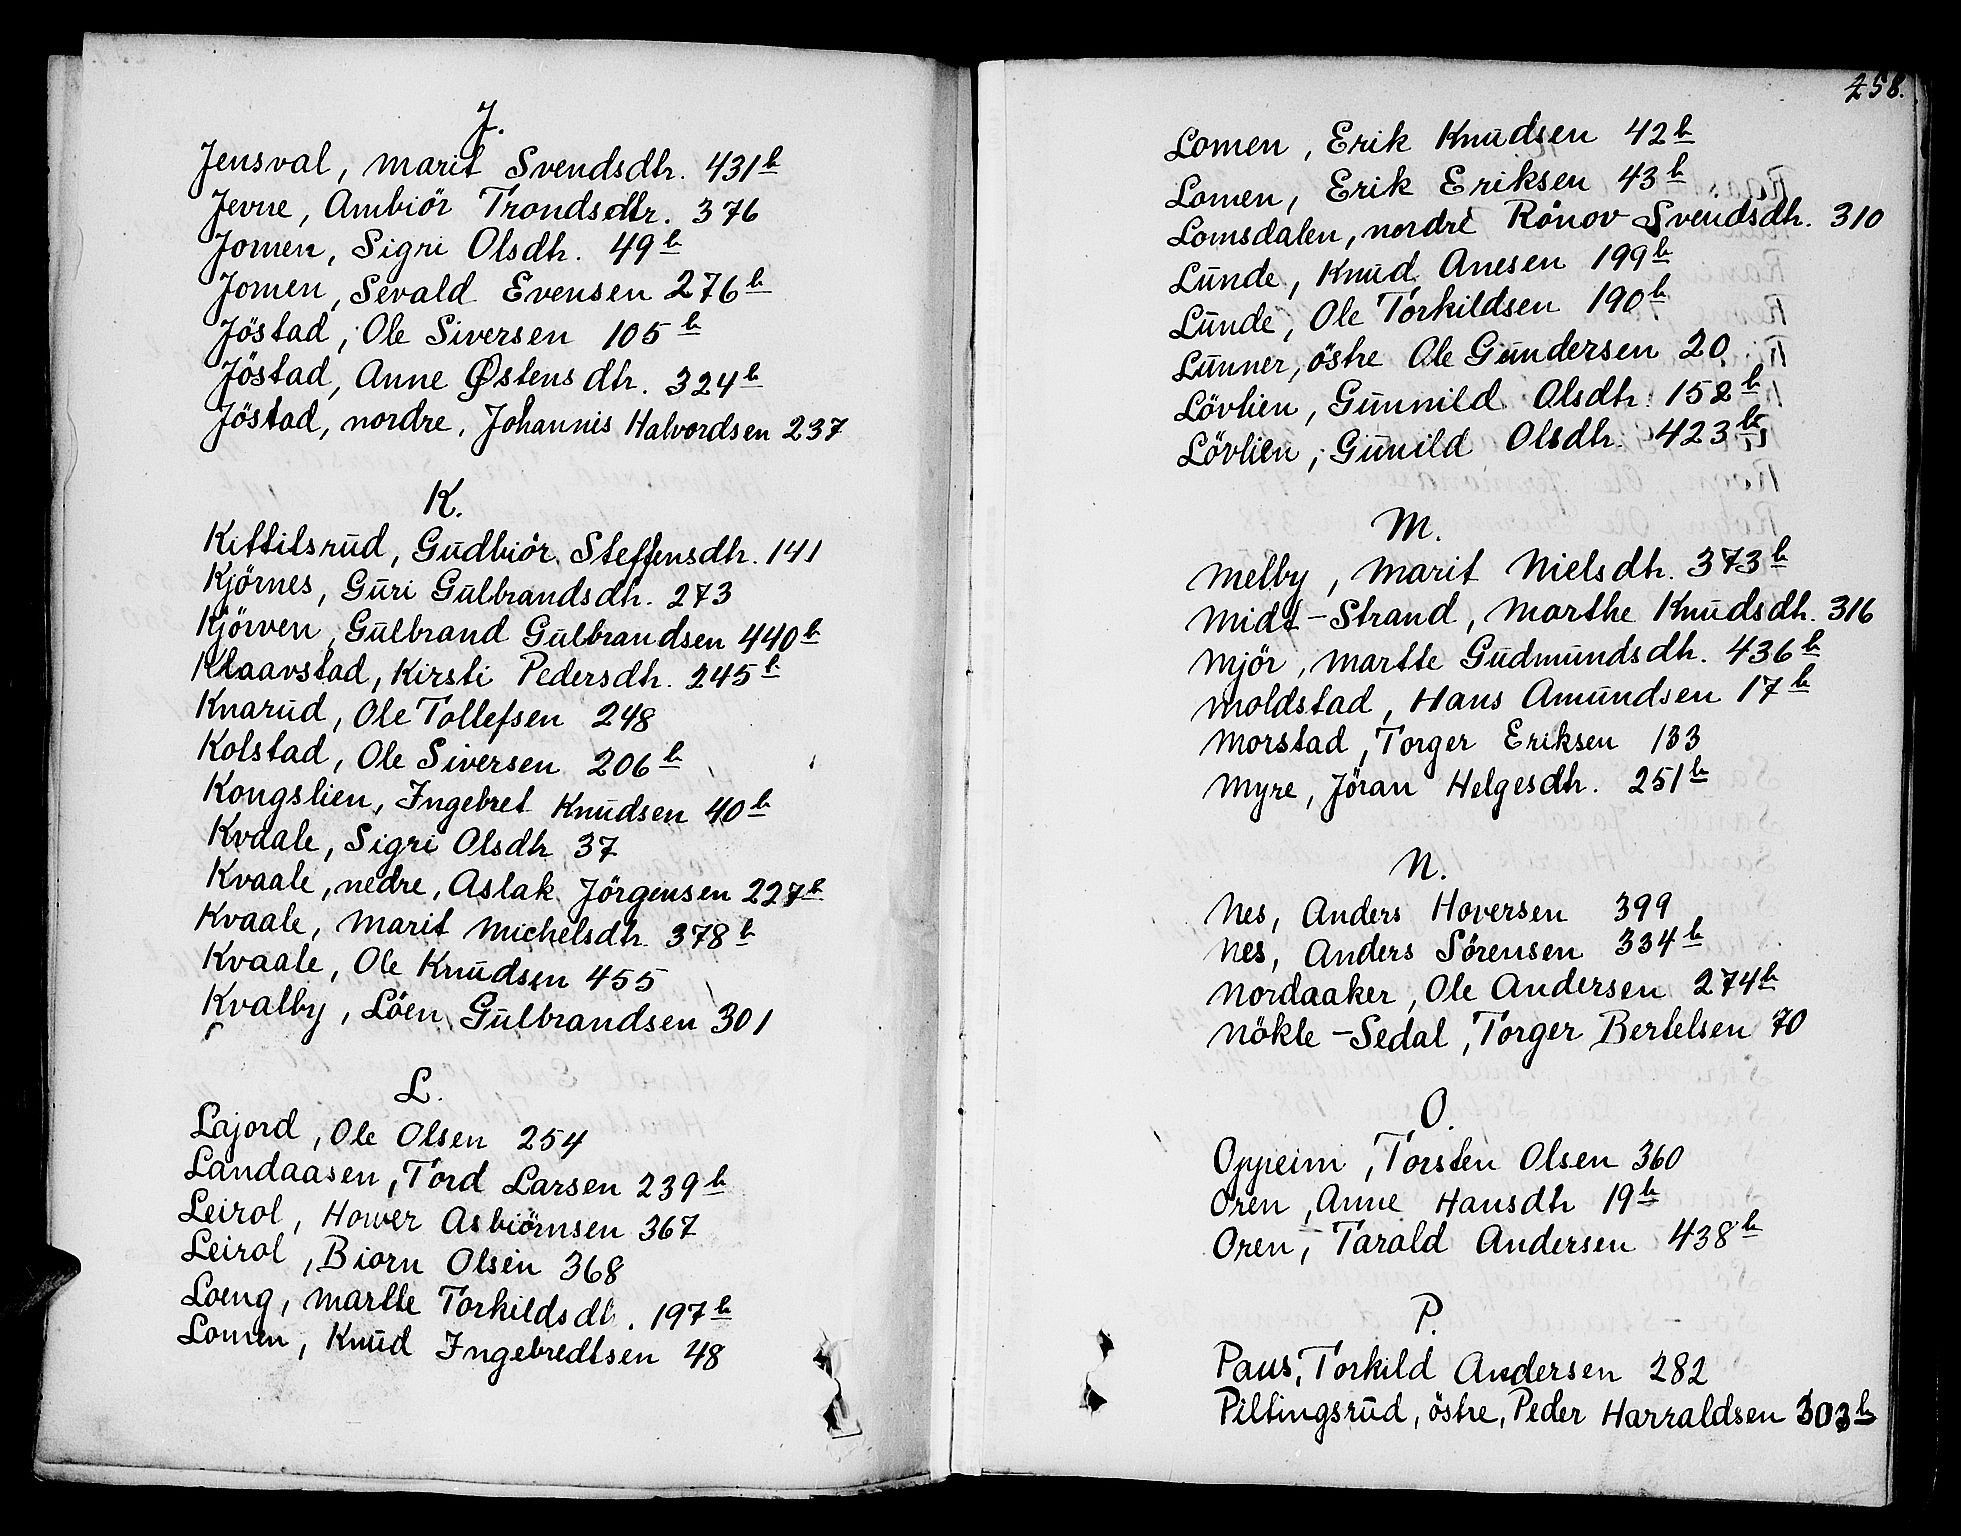 J.
Jensval, Marit Svendsdtr. 431b
Jevne, Ambiör Trondsdtr. 376
Jomen, Sigri Olsdtr. 49b
Jomen, Sevald Evensen 276b
Jöstad, Ole Siversen 105b
Jöstad, Anne Østensdtr. 324b
Jöstad, nordre, Johannis Halvordsen 237
K.
Kittilsrud, Gudbiör Steffensdtr. 141
Kjörnes, Guri Gulbrandsdtr. 273
Kjörven, Gulbrand Gulbrandsen 440b
Klaavstad, Kirsti Pedersdtr. 245b
Knarud, Ole Tollefsen 248
Kolstad, Ole Siversen 206b
Kongslien, Ingebret Knudsen 40b
Kvaale, Sigri Olsdtr 37
Kvaale, nedre, Aslak Jörgensen 227b
Kvaale, Marit Michelsdtr. 378b
Kvaale, Ole Knudsen 455
Kvalby, Löen Gulbrandsen 301
L.
Lajord, Ole Olsen 254
Landaasen, Tord Larsen 239b
Leirol, Hower Asbiörnsen 367
Leirol, Biorn Olsen 368
Loeng, Martte Torkildsdt. 197b
Lomen, Knud Ingebredtsen 48
258.
Lomen, Erik Knudsen 42b
Lomen, Erik Eriksen 43b
Lomsdalen, nordre Rönov Svendsdtr. 310
Lunde, Knud Anesen 199b
Lunde, Ole Torkildsen 190b
Lunner, östre Ole Gundersen 20
Lövlien, Gunnild Olsdtr. 152b
Lövlien, Gunild Olsdtr. 423b
M.
Melby, Marit Nielsdtr. 373b
Midt-Strand, Marthe Knudsdtr. 316
Mjör, Martte Gudmundsdtr. 436b
Moldstad, Hans Amundsen 17b
Morstad, Torger Eriksen 133
Myre, Jöran Helgesdtr. 251b
N.
Nes, Anders Hoversen 399
Nes, Anders Sörensen 334b
Nordaaker, Ole Andersen 274b
Nökle-Sedal, Torger Bertelsen 70
O.
Oppeim, Torsten Olsen 360
Oren, Anne Hansdtr 19b
Oren, Tarald Andersen 438b
P.
Paus, Torkild Andersen 282
Piltingsrud, östre, Peder Harraldsen 303b